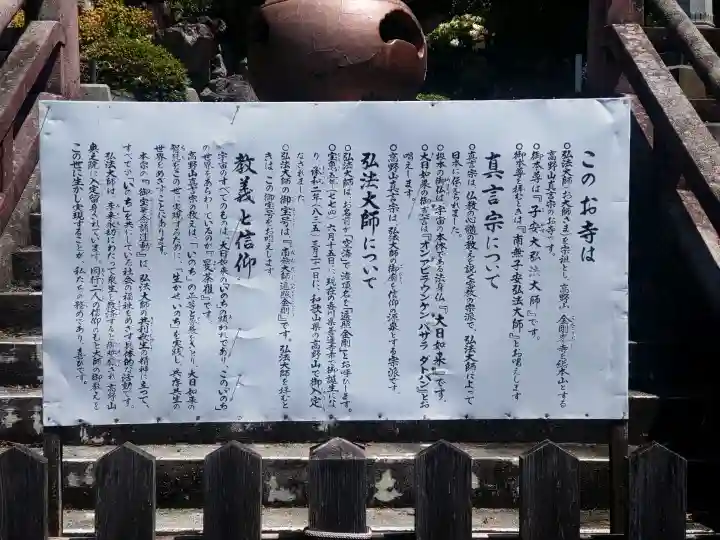 このお寺は
○弘法大師（お大師さま）を宗祖とし、高野山 金剛峯寺を総本山とする
高野山真言宗のお寺です。
○御本尊は『子安大弘法大師』です。
○御本尊を拝むときは『南無子安弘法大師』とお唱えします
真言宗について
○真言宗は、仏教の心髄の教えを説く密教の宗派で、弘法大師によって
日本に伝えられました。
○根本の御仏は、宇宙の本体である法身仏『大日如来』です。
○大日如来の御真言は『オン アビラウンケン バザラ ダトバン』とお
唱えします。
○高野山真言宗は、弘法大師の御廟を信仰の源泉とする宗派です。
弘法大師について
○弘法大師は、お名前が「空海」で、灌頂名を「遍照金剛」とお呼びします。
○宝亀五年（七七四）六月十五日に、現在の香川県善通寺市に御誕生にな
り、承和二年（八三五）三月二十一日に、和歌山県の高野山で御入定
なされました。
○弘法大師の御宝号は『南無大師遍照金剛』です。弘法大師を拝むと
きは、この御宝号をお唱えします。
教義と信仰
宇宙のすべてのものは、大日如来のいのちの顕われであり、このいのち
の世界をあらわしているのが『曼荼羅』です。
高野山真言宗の教えは、『いのち』の平等と尊厳をさとり、大日如来の
智慧をこの世に実現するために、『生かせいのち』を実践し、共存共生の
世界をめざすことにあります。
本宗の『御宝号念誦運動』は、弘法大師の共利群生の精神に立って、
すべての『いのち』を共にしている社会の福祉をめざす具体的な活動です。
弘法大師は、未来永劫にわたって衆生を救済する御誓願され、高野山
奥之院に入定留身されています。同行二人の信仰のもと、大師の御教えを
この世に生かし実現することが、私たちの務めであり、喜びです。